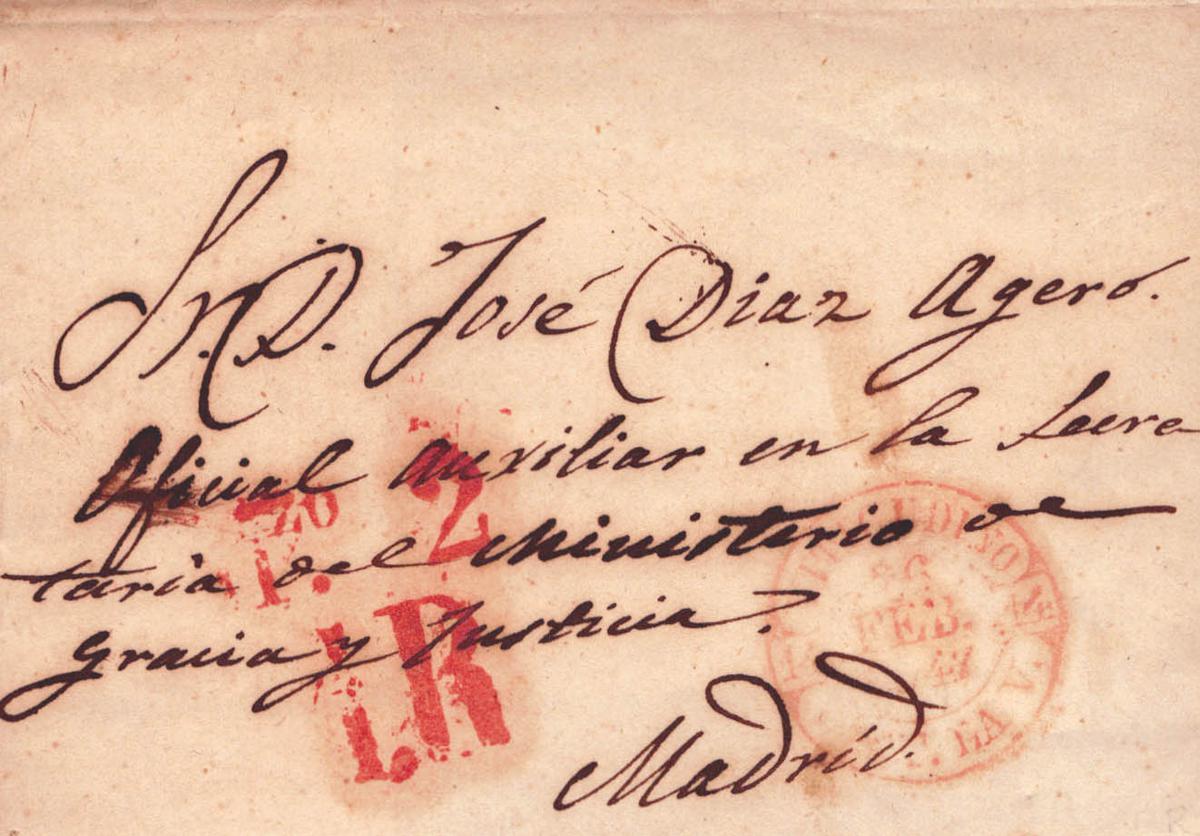 Sr. D. José Diaz Agero.
Oficial Auxiliar en la Secre
taria del Ministerio de
Gracia y Justicia.
Madrid.
2
R
26
FEB.